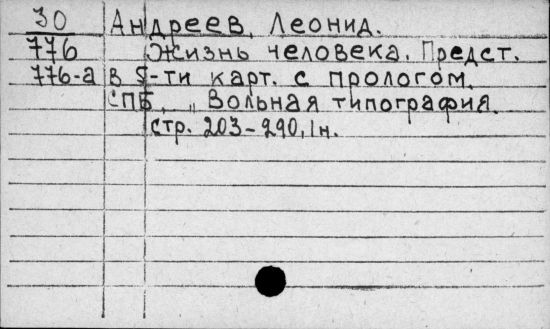 30 Андреев, Леонид.
776 Жизнь человека. Предст.
776-а в 5-ти карт. с прологом.
СПБ, „Вольная типография.
стр. 203-290, 1н.